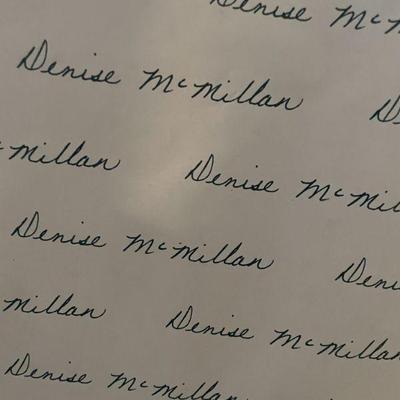 Denise McM
Denise McMillan D
McMillan Denise McMil
Denise McMillan Deni
Millan Denise McMillan
Denise McMillan